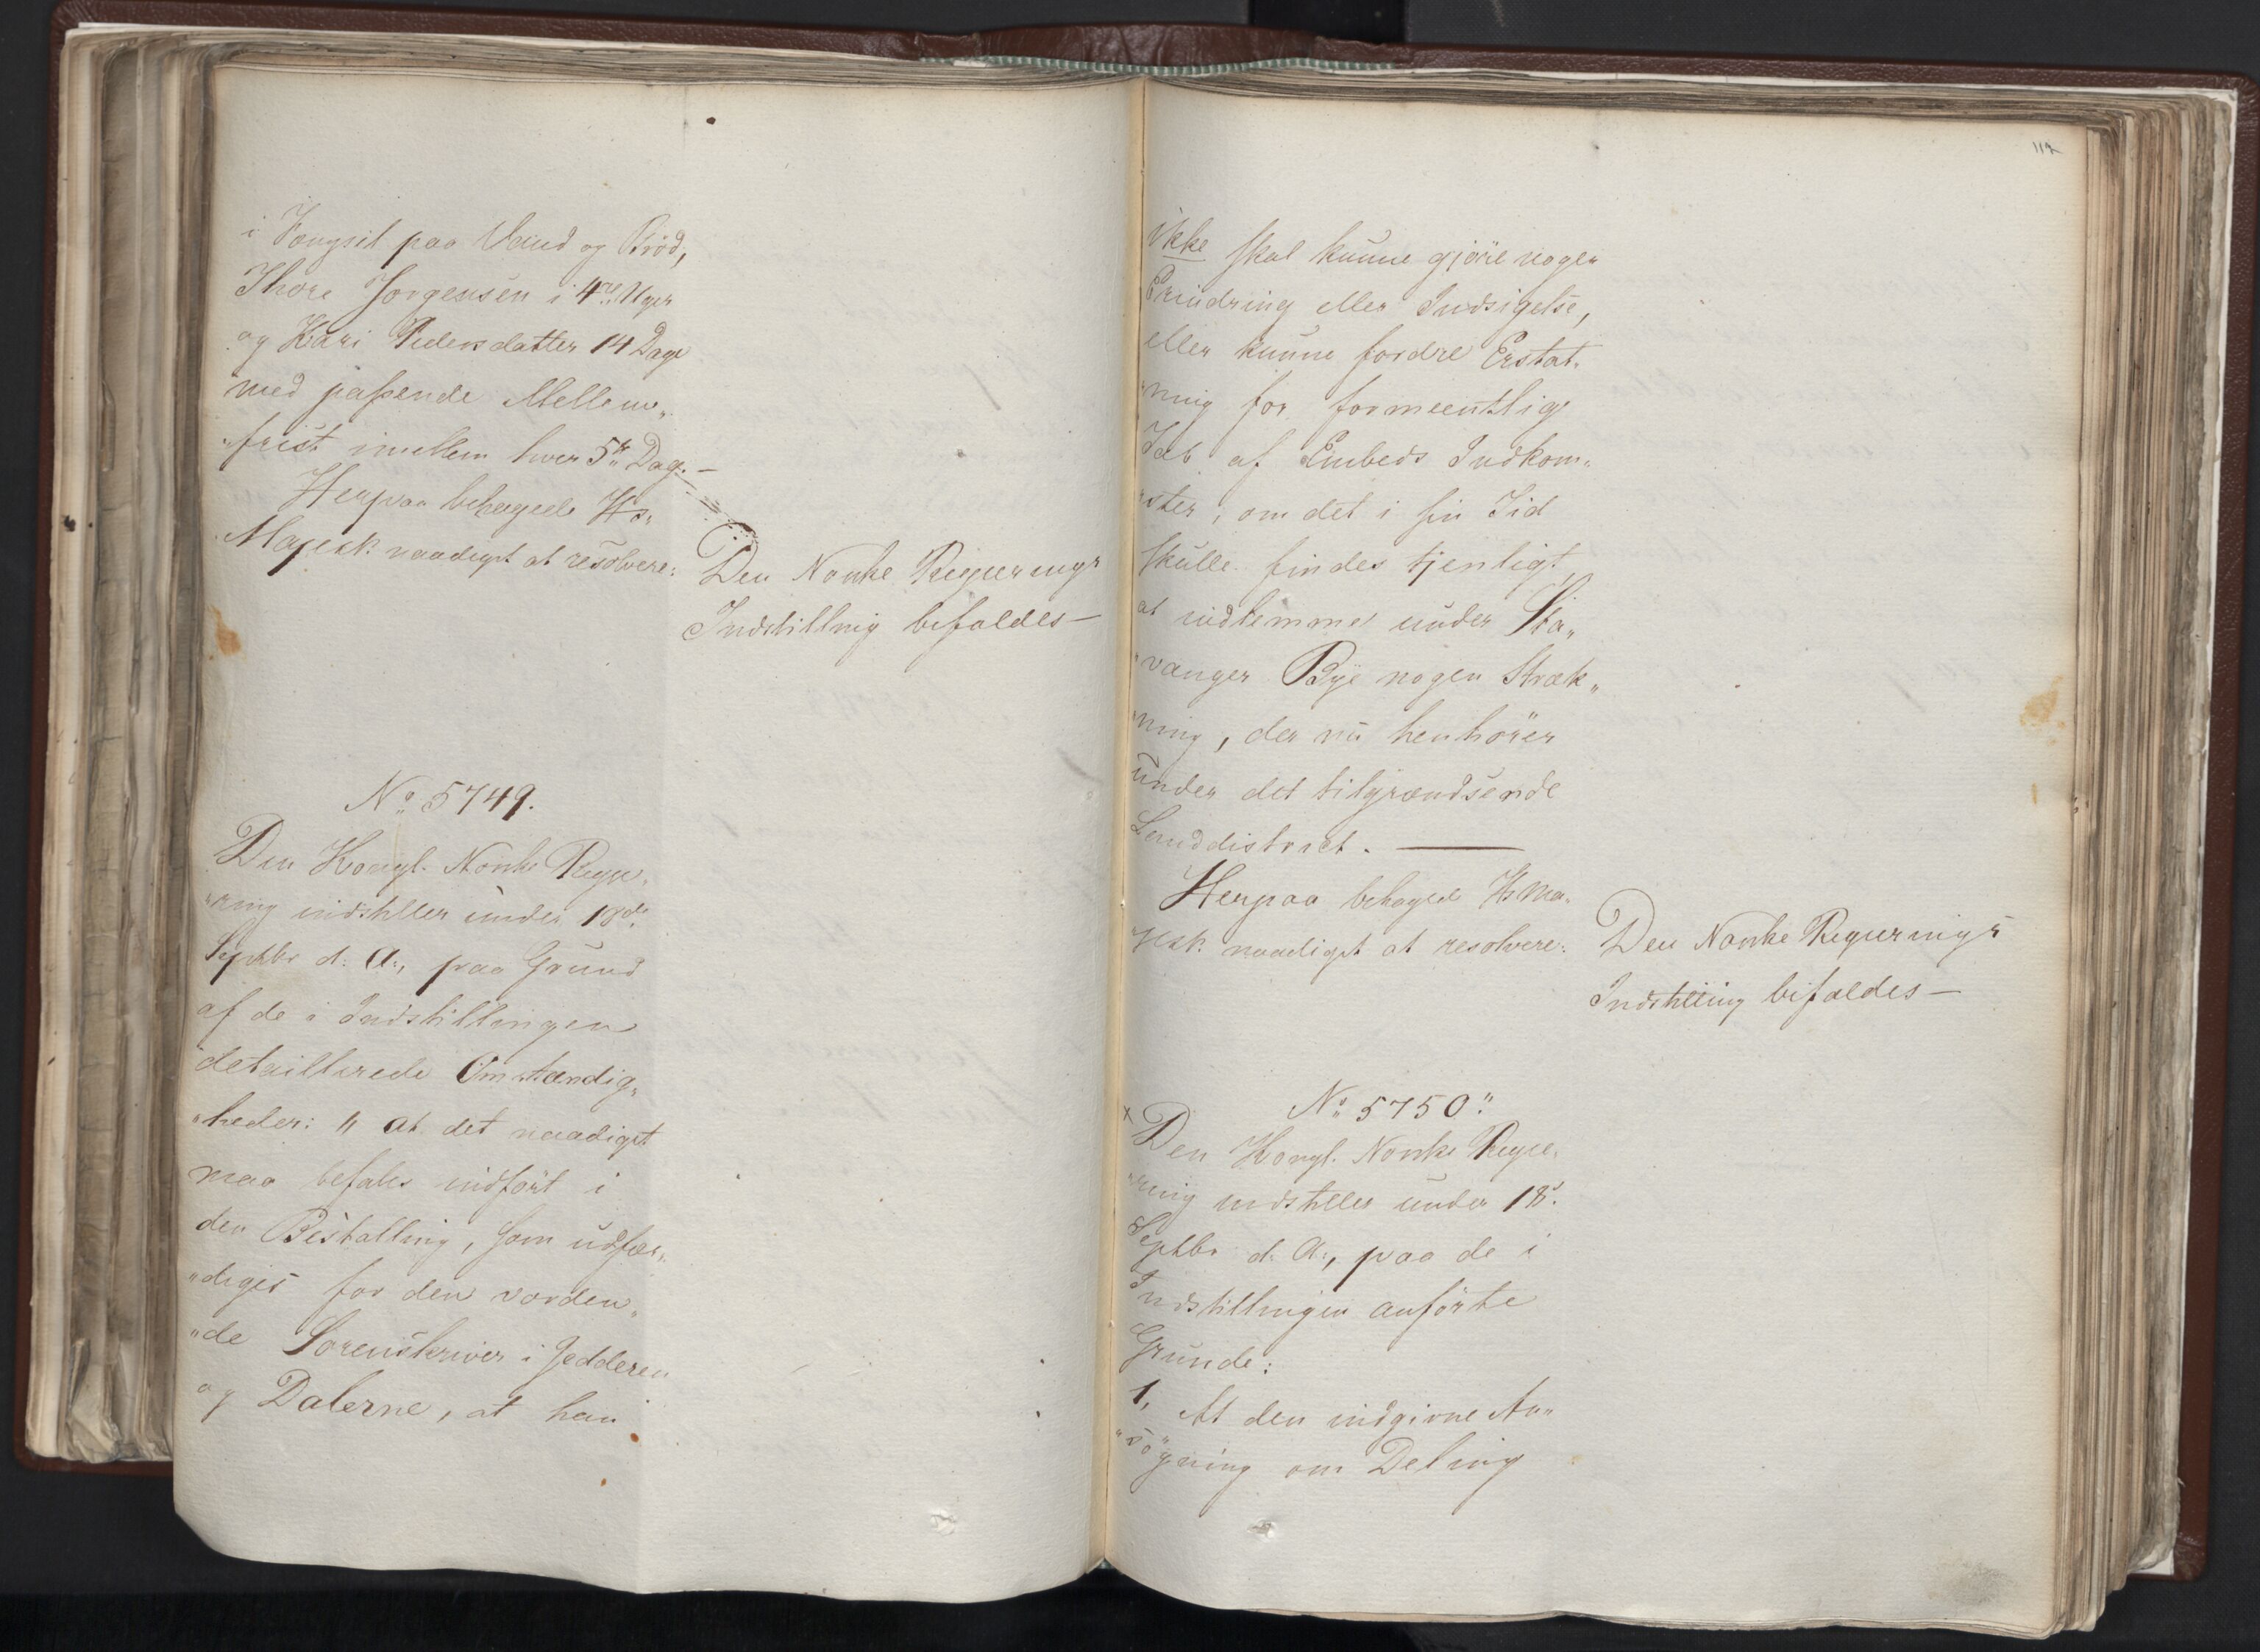 i Fængsel paa Vand og Brød,
Thore Jørgensen i 4re Uger
og Kari Pedersdatter 14 Dage
med passende Mellem„
„frist imellem hver 5te Dag. —
Herpaa behagede Hs.
Majestt naadigst at resolvere:
Den Norske Regjerings
Indstilling bifaldes —
No 5749.
Den Kongl. Norske Regje„
„ring indstiller under 18de
Septbr d: A:, paa Grund
af de i Indstillingen
detaillerede Omstændig„
„heder: „ at det naadigst
maa befales indført i
den Bestalling, som udfær„
„diges for den vorden„
„de Sorenskriver i Jedderen
og Dalerne, at han
117
ikke skal kunne gjøre nogen
Erindring eller Indsigelse,
eller kunne fordre Erstat„
„ning for formeentlig
Tab af Embeds Indkom„
„ster, om det i sin Tid
skulle findes tjenligt,
at indlemme under Sta„
„vanger Bye nogen Stræk„
„ning, der nu henhører
under det tilgrændsende
Landdistrict. —
Herpaa behagede Hs Ma„
jestt naadigst at resolvere:
Den Norske Regjerings
Indstilling bifaldes —
No 5750.
x
Den Kongl. Norske Regje„
„ring indstiller under 18d.
Septbr d. A:, paa de i
Indstillingen anførte
Grunde:
1, At den indgivne An„
„søgning om Deling